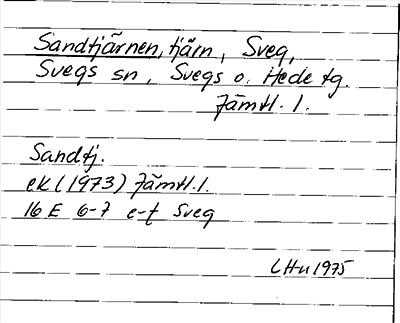 Sandtjärnen, tjärn, Sveg,
Svegs sn, Svegs o. Hede tg.
Jämtl. l.
Sandtj.
ek (1973) Jämtl. l.
16 E 6-7 e-f Sveg
LHu 1975